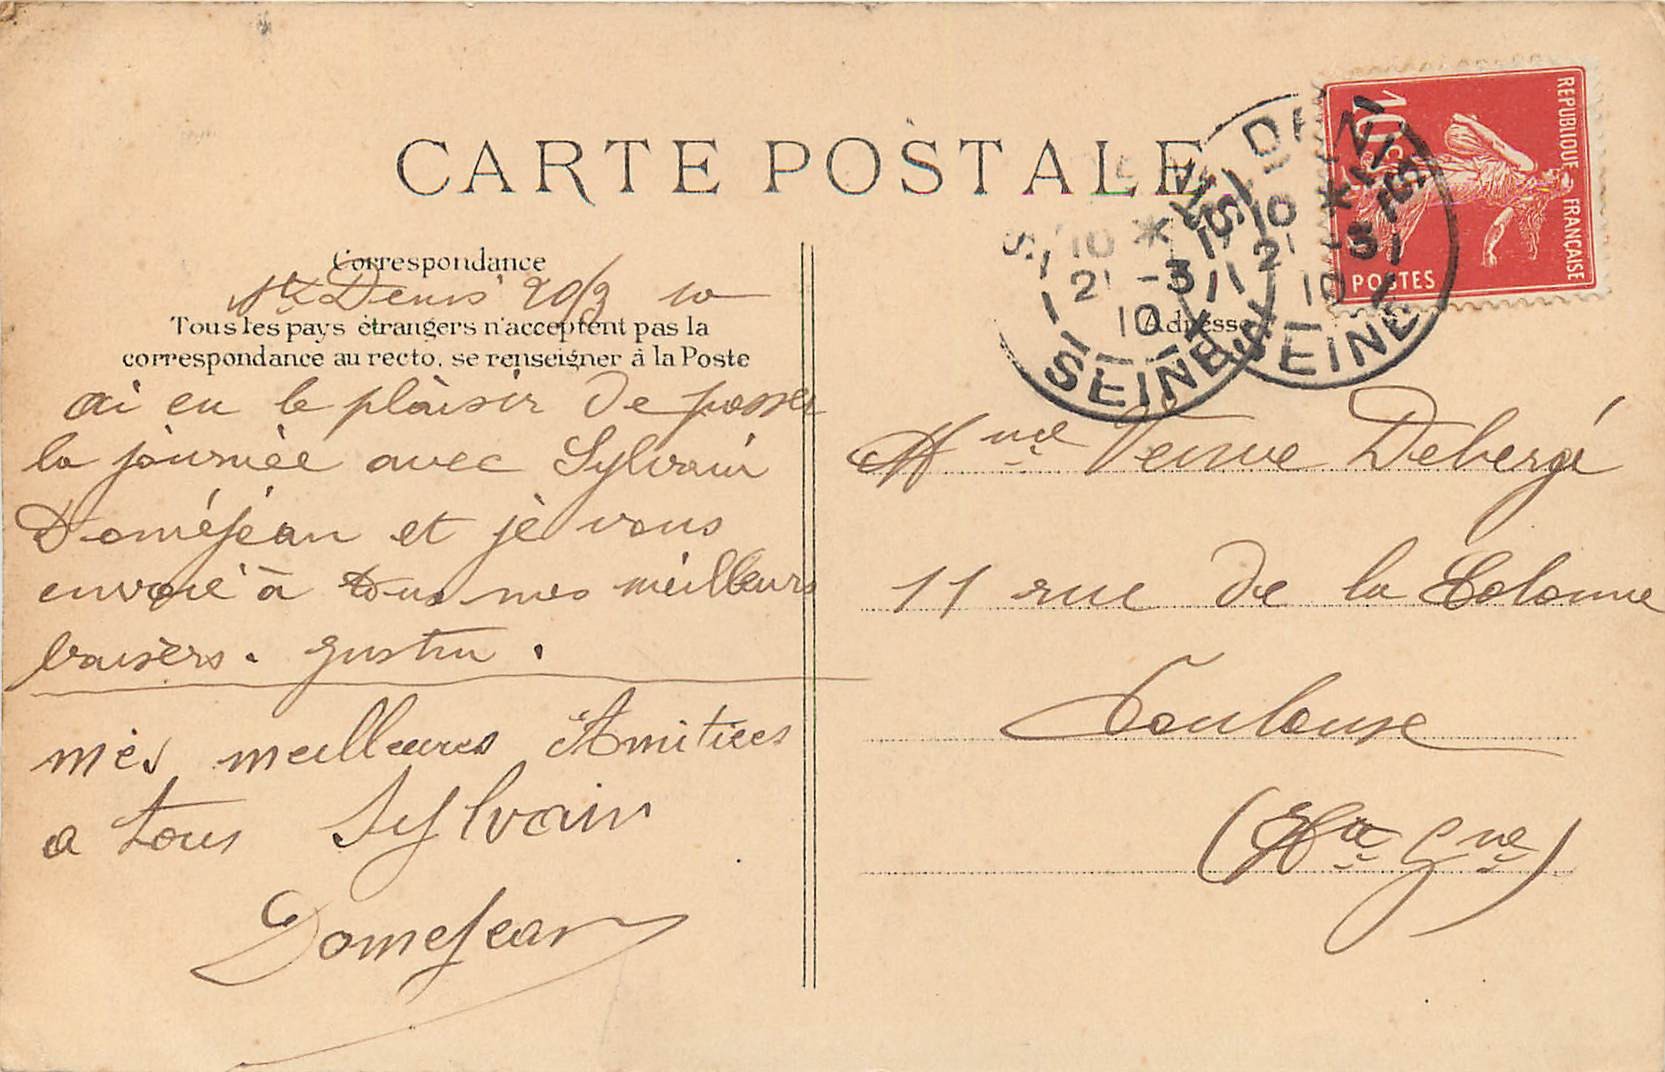 CARTE POSTALE
Correspondance
St Denis 20/3 10
Tous les pays étrangers n'acceptent pas la
correspondance au recto, se renseigner à la Poste
ai eu le plaisir de passer
la journée avec Sylvain
Doméjean et je vous
envoie à tous mes meilleurs
baisers. Justin.
mes meilleures Amitiees
a tous Sylvain
Domejean
REPUBLIQUE FRANÇAISE
10c
POSTES
ST DENIS
10 *
21 -3
10
SEINE
ST DENIS
10 *
21 -3
10
SEINE
Adresse
Mme Veuve Debergé
11 rue de la Colonne
Toulouse
(Hte Gne)